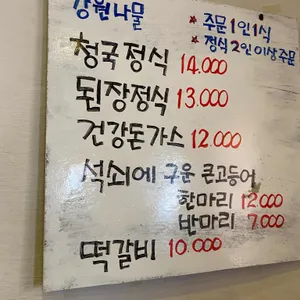 강원나물
* 주문 1인 1식
* 정식 2인 이상 주문
청국정식 14.000
된장정식 13.000
건강돈가스 12.000
석쇠에 구운 큰고등어
한마리 12.000
반마리 7.000
떡갈비 10.000